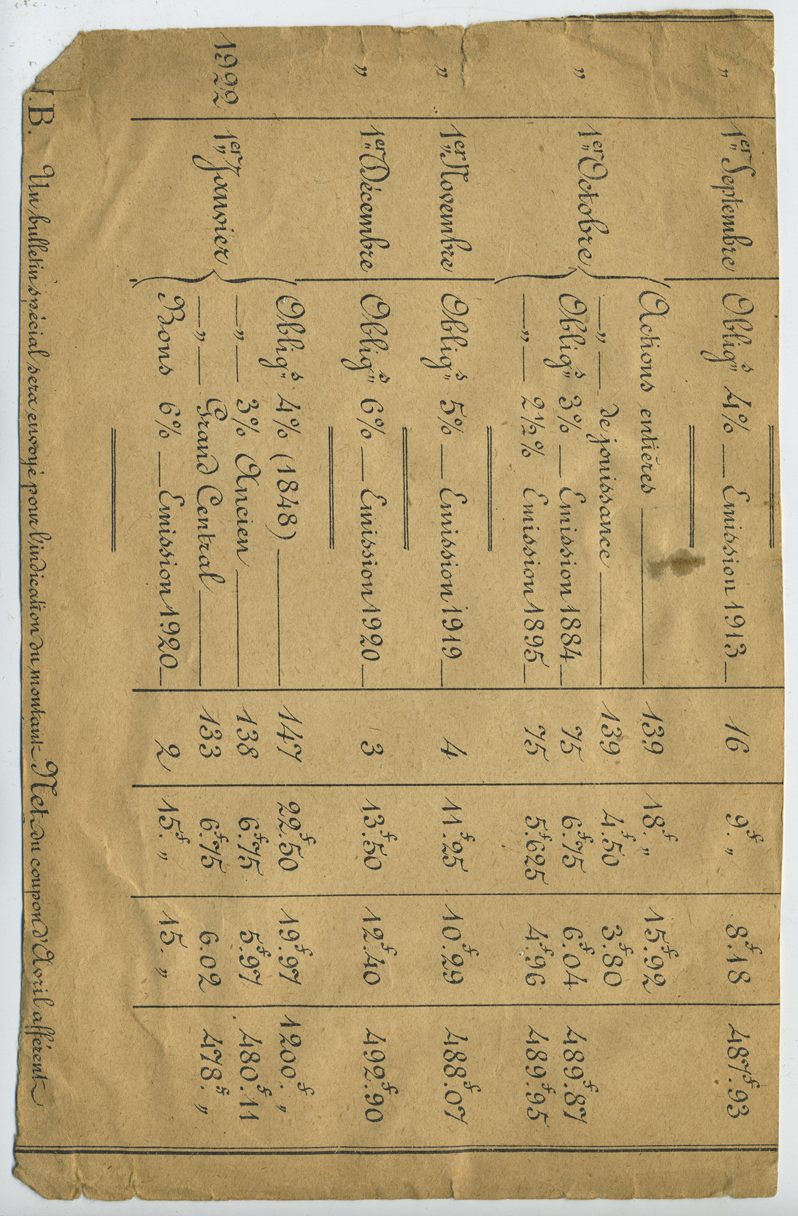 „ 1er„ Septembre Oblig.s„ 4% — Emission 1913 — 16 9.f „ 8f.18 487f.93
Actions entières 139 18f „ 15f.92
„ 1er„ Octobre —„— de jouissance 139 4f.50 3f.80
Oblig.s„ 3% — Emission 1884 — 75 6f.75 6f.04 489f.87
—„— 2½% Emission 1895 — 75 5f.625 4f.96 489f.95
„ 1er„ Novembre Oblig.s„ 5% — Emission 1919 — 4 11f.25 10f.29 488f.07
„ 1er„ Décembre Oblig.s„ 6% — Emission 1920 — 3 13f.50 12f.40 492f.90
Oblig.s„ 4% (1848) 147 22f.50 19f.97 1200.f „
1922 1er„ Janvier —„— 3% Ancien 138 6f.75 5f.97 480f.11
—„— Grand Central 133 6f.75 6.02 478.f „
Bons 6% — Emission 1920 — 2 15f. „ 15. „
.B. Un bulletin spécial sera envoyé pour l'indication du montant Net du coupon d'Avril afférent